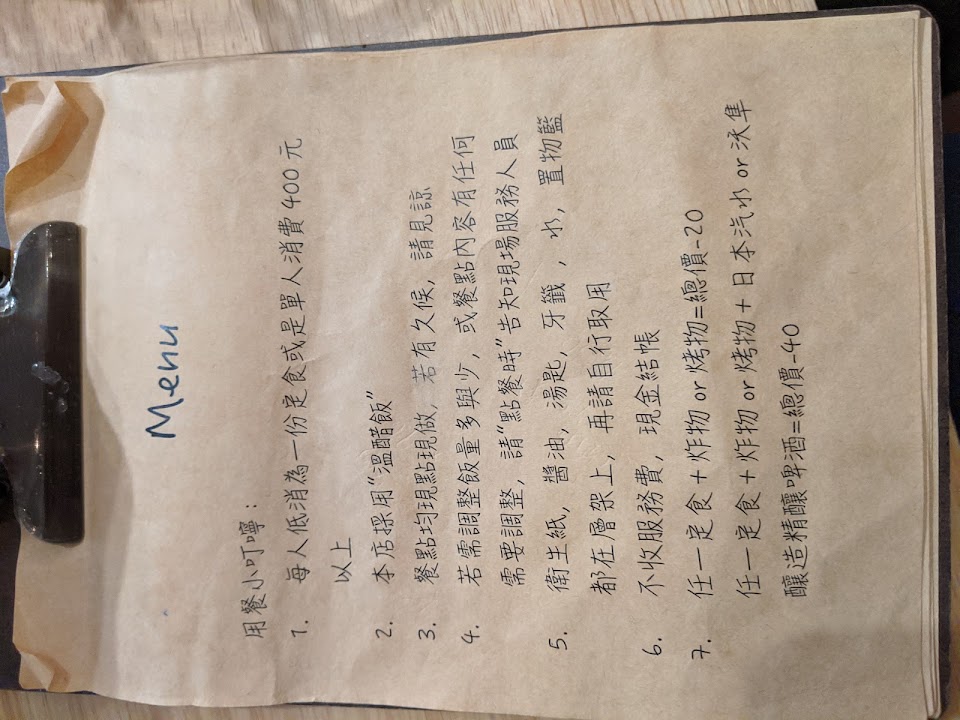 Menu
用餐小叮嚀：
1. 每人低消為一份定食或是單人消費400元
以上
2. 本店採用“溫醋飯”
3. 餐點均現點現做，若有久候，請見諒
4. 若需調整飯量多與少，或餐點內容有任何
需要調整，請“點餐時”告知現場服務人員
5. 衛生紙，醬油，湯匙，牙籤，水，置物籃
都在層架上，再請自行取用
6. 不收服務費，現金結帳
7. 任一定食＋炸物or烤物=總價-20
任一定食＋炸物or烤物＋日本汽水or沃隼
釀造精釀啤酒=總價-40